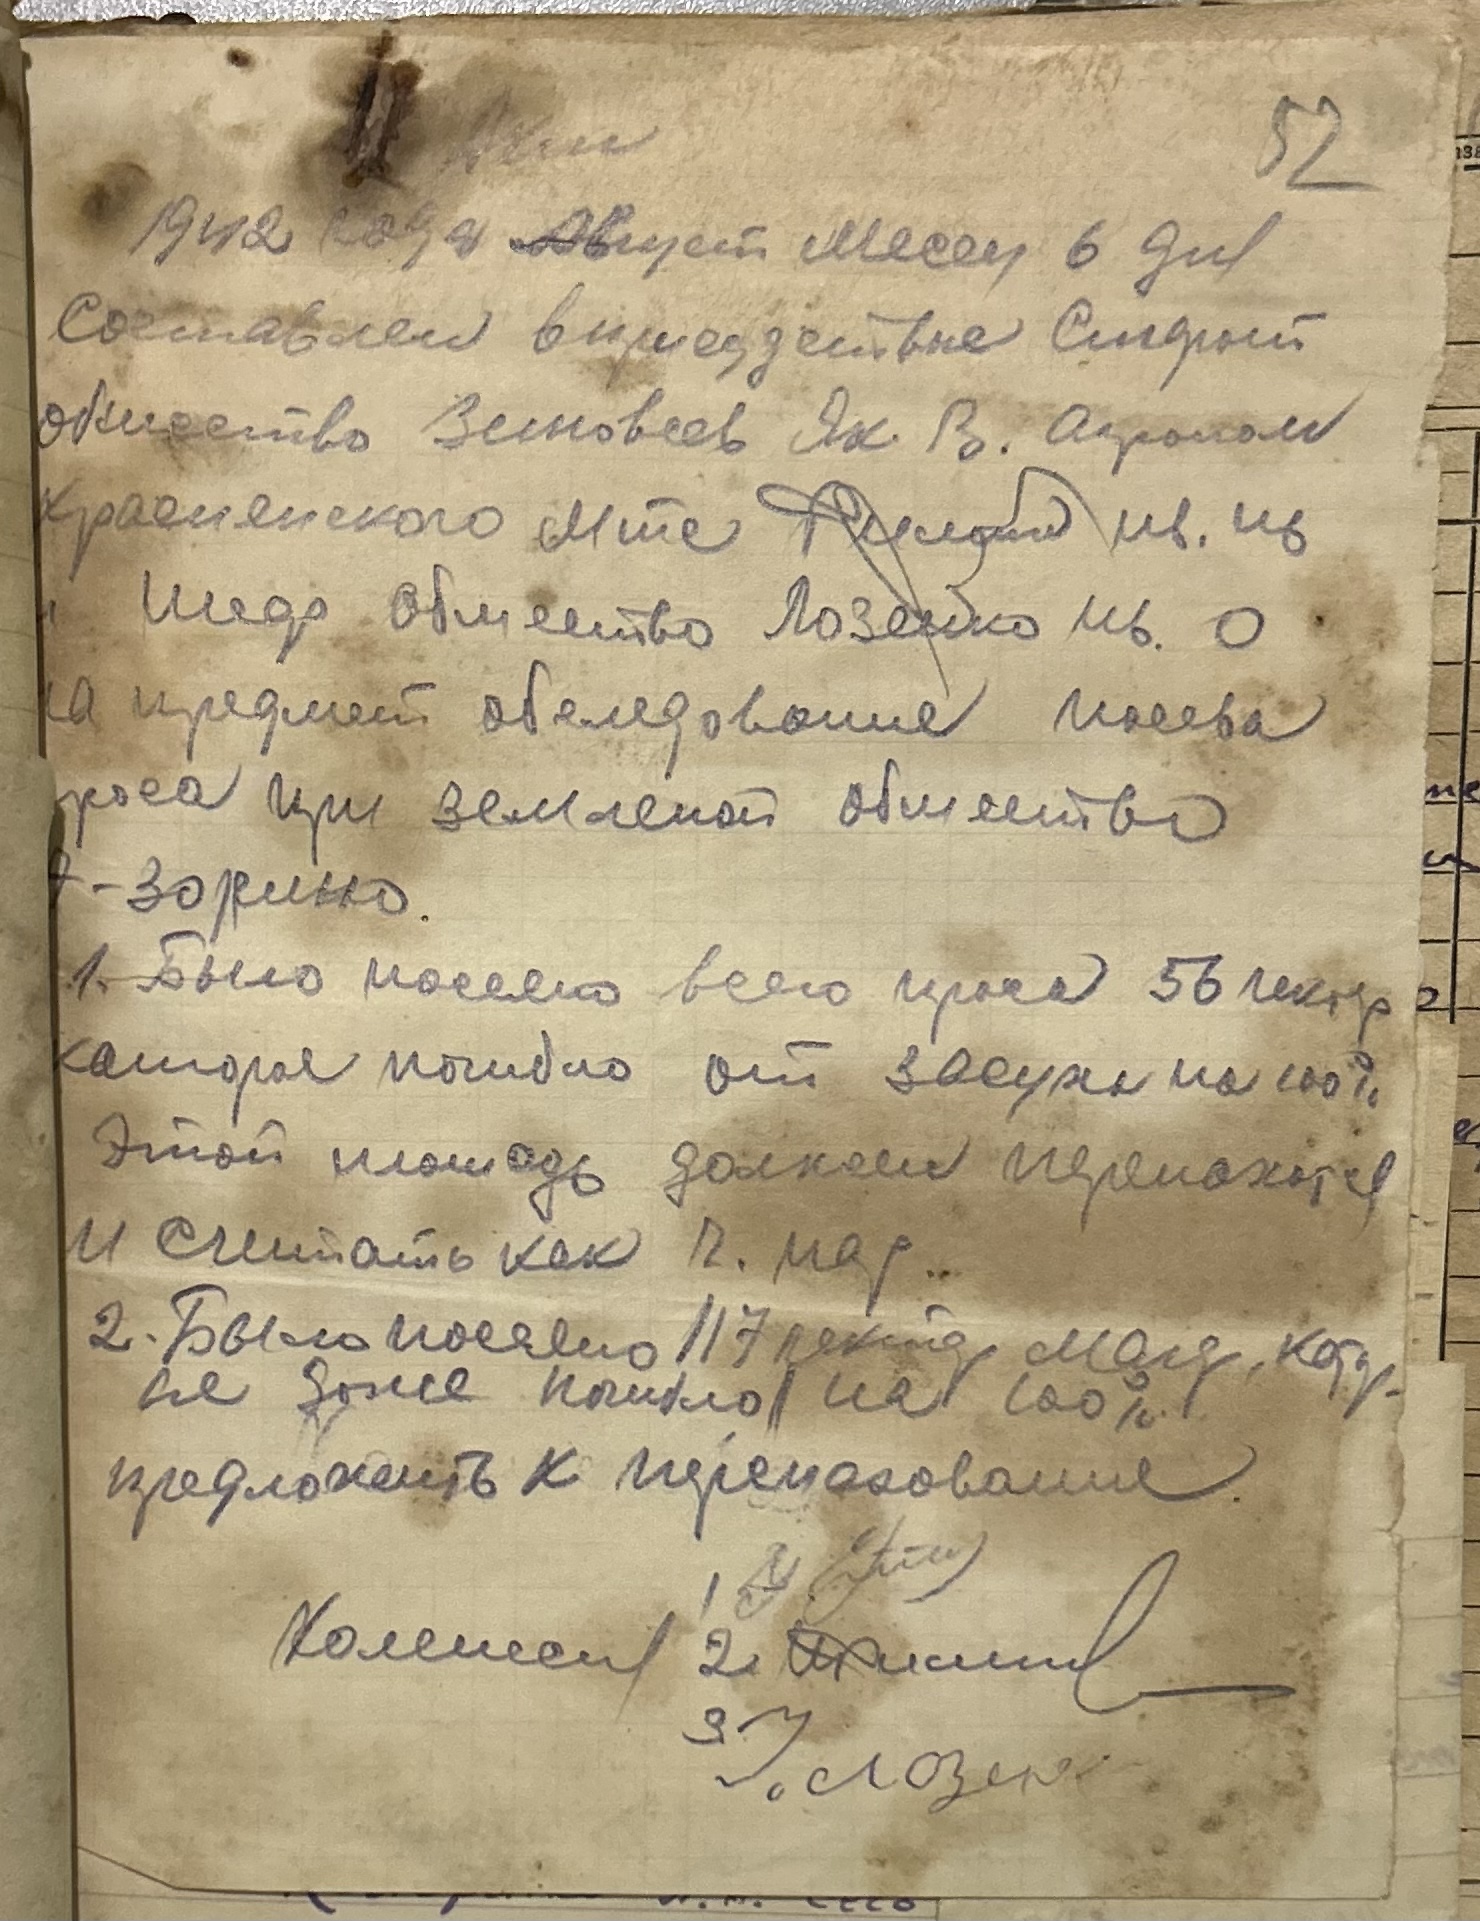 52
Акт
1942 года Август Месец 6 дня
Составлен вприсудствие
общество Зиновеев Як. В. Агроном
Красненского Мтс Ив. Ив
общество Лозенко Ив. О
на предмет обследование посева
проса при земленой общество
Зорино.
1. Было посеяно всего проса 56 гектр
каторое погибло от засухи на 100%
Этой площадь должен перепахатся
и считать как ч. пар.
2. Было посеяно 117 гектр
тоже погибло на 100%
предложить к перепахование.
1
2.
3 Лозенк